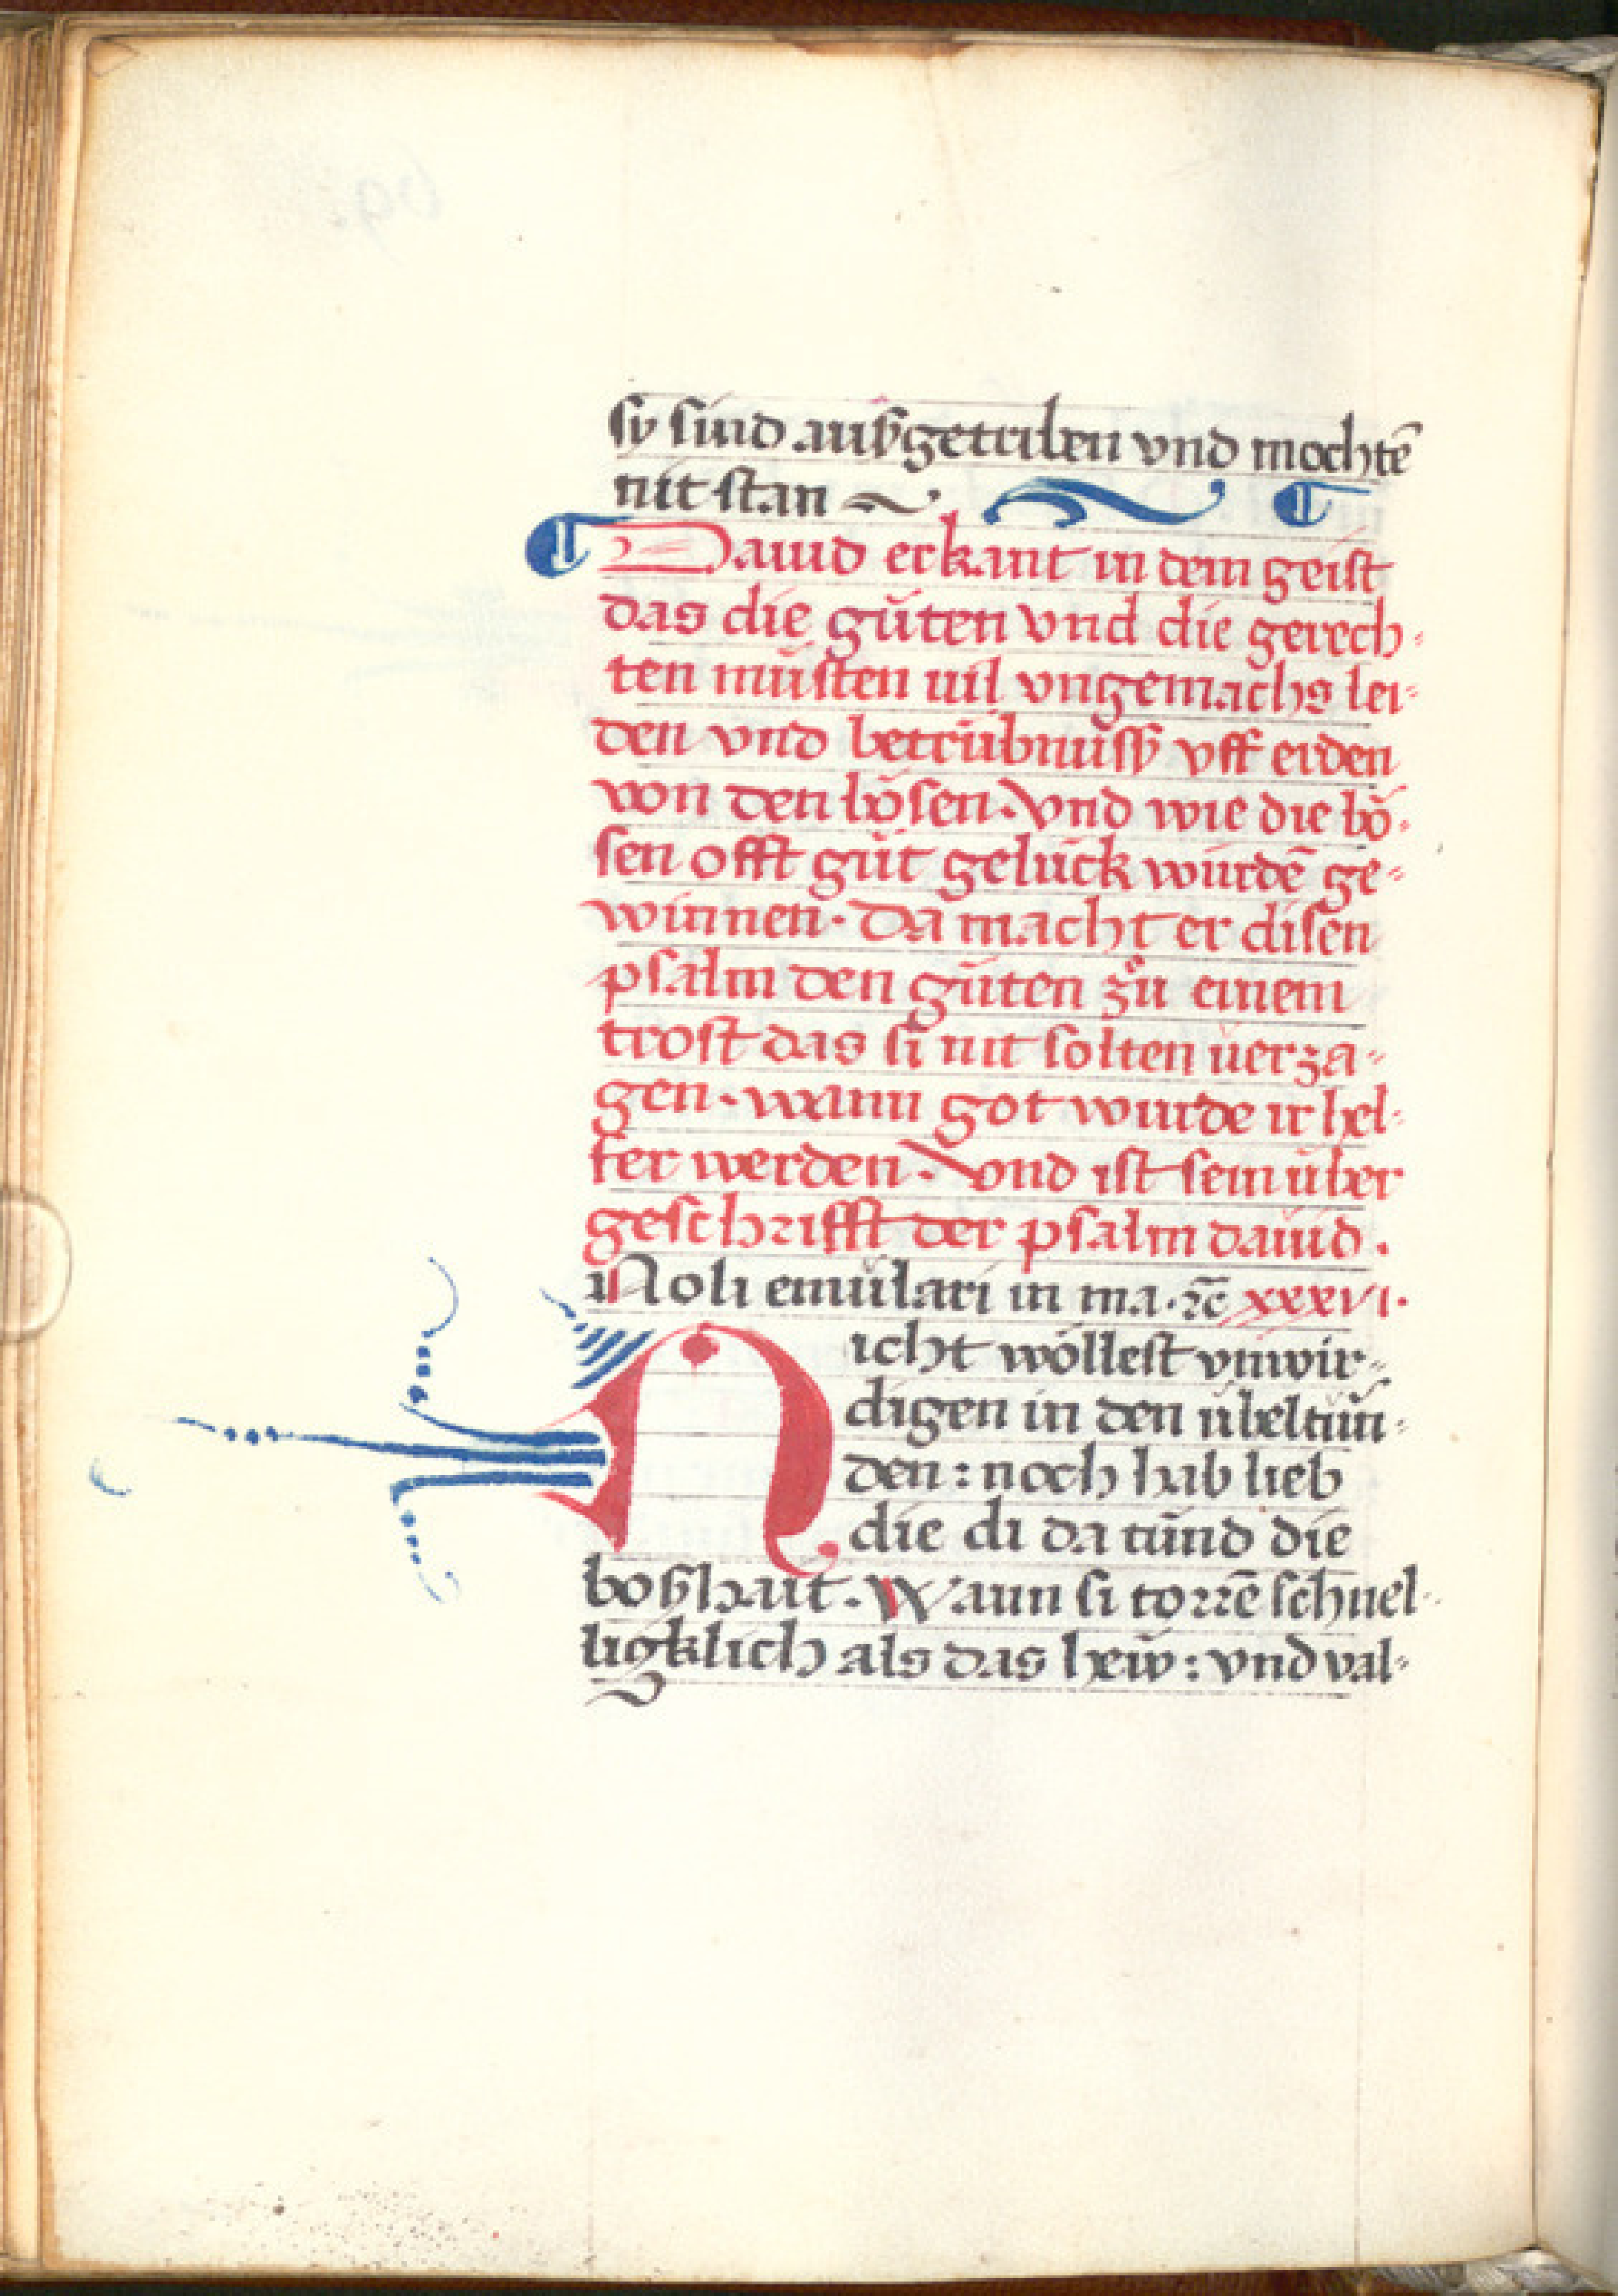 sy sind außgetriben vnd mochtē
nit stan
Dauid erkant in dem geist
das die gůten vnd die gerech⸗
ten můsten uil vngemachs lei⸗
den vnd betrübnüsß vff erden
von den bösen. Vnd wie die bö⸗
sen offt gůt gelück würdē ge⸗
winnen. Da macht er disen
psalm den gůten zů einem
trost das si nit solten uerza⸗
gen. wann got wurde ir hel⸗
fer werden. Vnd ist sein über
geschrifft der psalm dauid.
Noli emulari in ma. ⁊c̄ xxxvi.
Nicht wöllest vnwir⸗
digen in den übeltůn⸗
den: noch hab lieb
die di da tůnd die
boßhait. Wann si torrē schnel⸗
ligklich als das hew: vnd val⸗